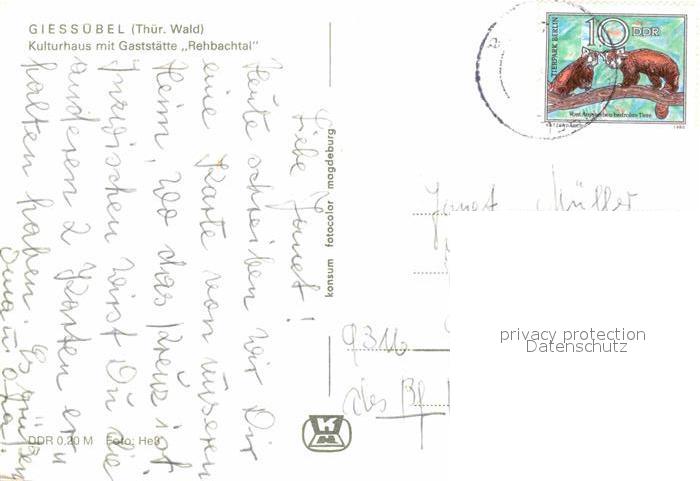 GIESSÜBEL (Thür. Wald)
Kulturhaus mit Gaststätte „Rehbachtal"
Liebe Janet!
Heute schreiben wir Dir
eine Karte von unserem
Heim, wo das Kreuz ist
inzwischen wirst Du die
anderen 2 Karten er-
halten haben. Es grüßen
Oma u. Opa!
konsum fotocolor magdeburg
DDR 0,20 M Foto: Heß
TIERPARK BERLIN
10 DDR
Vom Aussterben bedrohte Tiere
1980
Janet Müller
9316
des Bf
privacy protection
Datenschutz